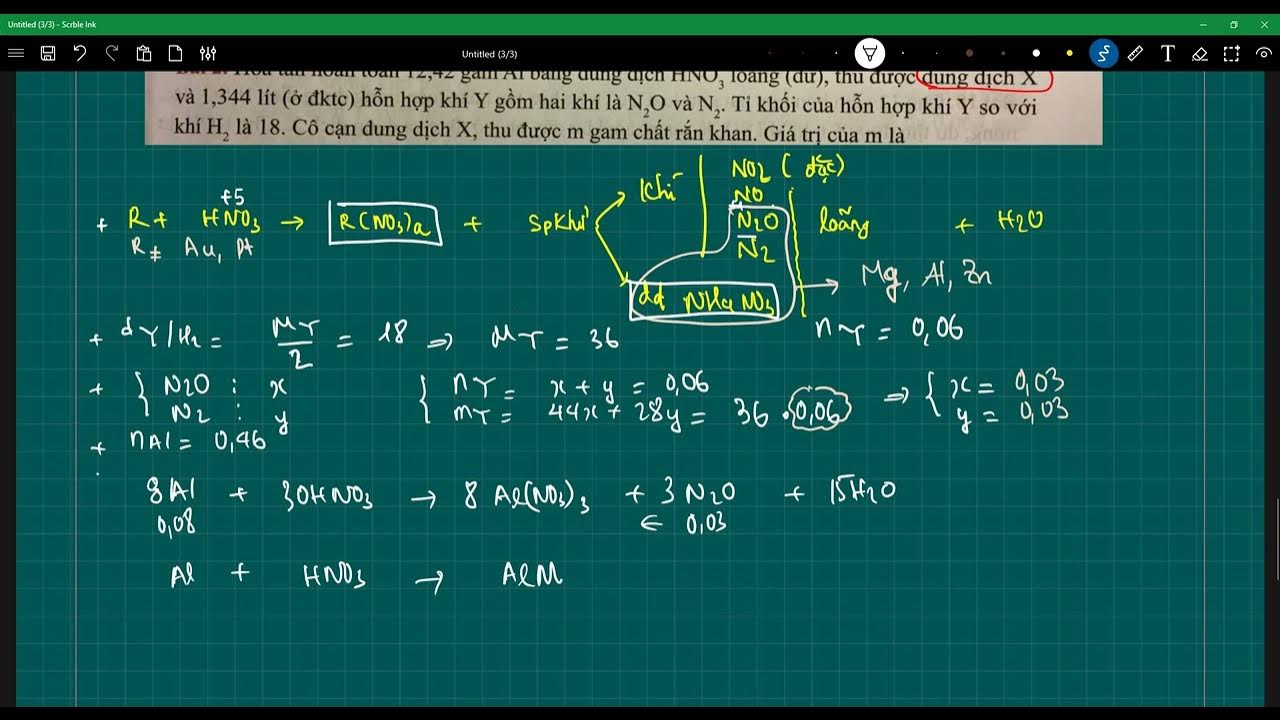 Untitled (3/3) - Scrble Ink
Untitled (3/3)
T
Hoà tan hoàn toàn 12,42 gam Al bằng dung dịch HNO3 loãng (dư), thu được dung dịch X
và 1,344 lít (ở đktc) hỗn hợp khí Y gồm hai khí là N2O và N2. Tỉ khối của hỗn hợp khí Y so với
khí H2 là 18. Cô cạn dung dịch X, thu được m gam chất rắn khan. Giá trị của m là
Khí NO2 ( đặc)
+5 NO
+ R + HNO3 → R(NO3)a + Spkhử N2O loãng + H2O
R ≠ Au, Pt N2
dd NH4NO3 → Mg, Al, Zn
+ d Y/H2 = MY/2 = 18 => MY = 36 nY = 0,06
+ { N2O : x { nY = x + y = 0,06 => { x = 0,03
N2 : y mY = 44x + 28y = 36 . 0,06 y = 0,03
+ nAl = 0,46
8Al + 30HNO3 → 8 Al(NO3)3 + 3 N2O + 15H2O
0,08 ← 0,03
Al + HNO3 → AlN